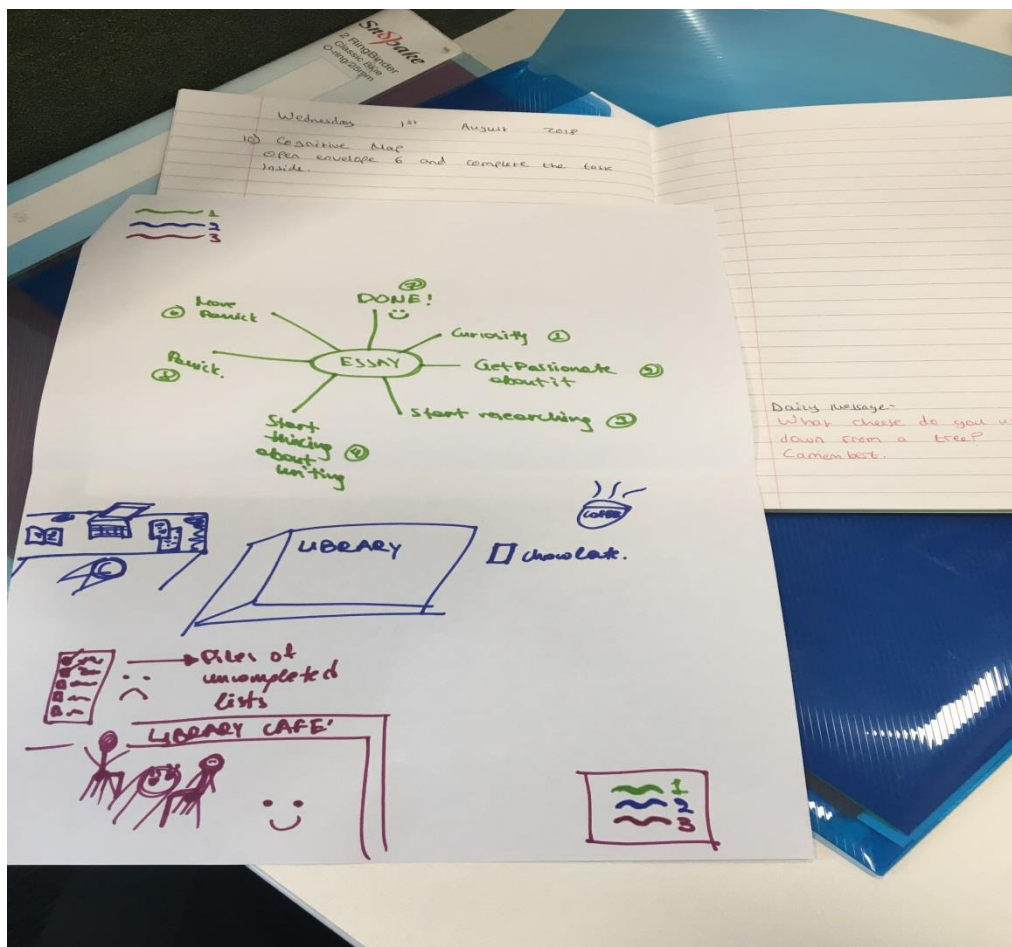 Snopake
2 RingBinder
Classic Blue
O-ring/25mm
Wednesday 1st August 2018
10) Cognitive Map
Open envelope 6 and complete the task
inside.
1
2
3
ESSAY
Curiosity ①
Get Passionate ②
about it
Start researching ③
Start
thiking
about ④
writing
Panick.
⑤
More
⑥ Panick
⑦
DONE!
LIBRARY
COFFEE
chowlate.
Piles of
uncompleted
lists
LIBRARY CAFE'
1
2
3
Daily message-
What cheese do you u
down from a tree?
Camembert.